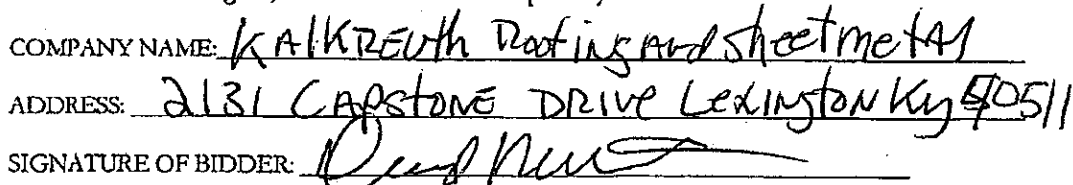 COMPANY NAME: KAlKREUth Roofing And sheetmetAl
ADDRESS: 2131 CAPSTONE DRIVE Lexington Ky 40511
SIGNATURE OF BIDDER: